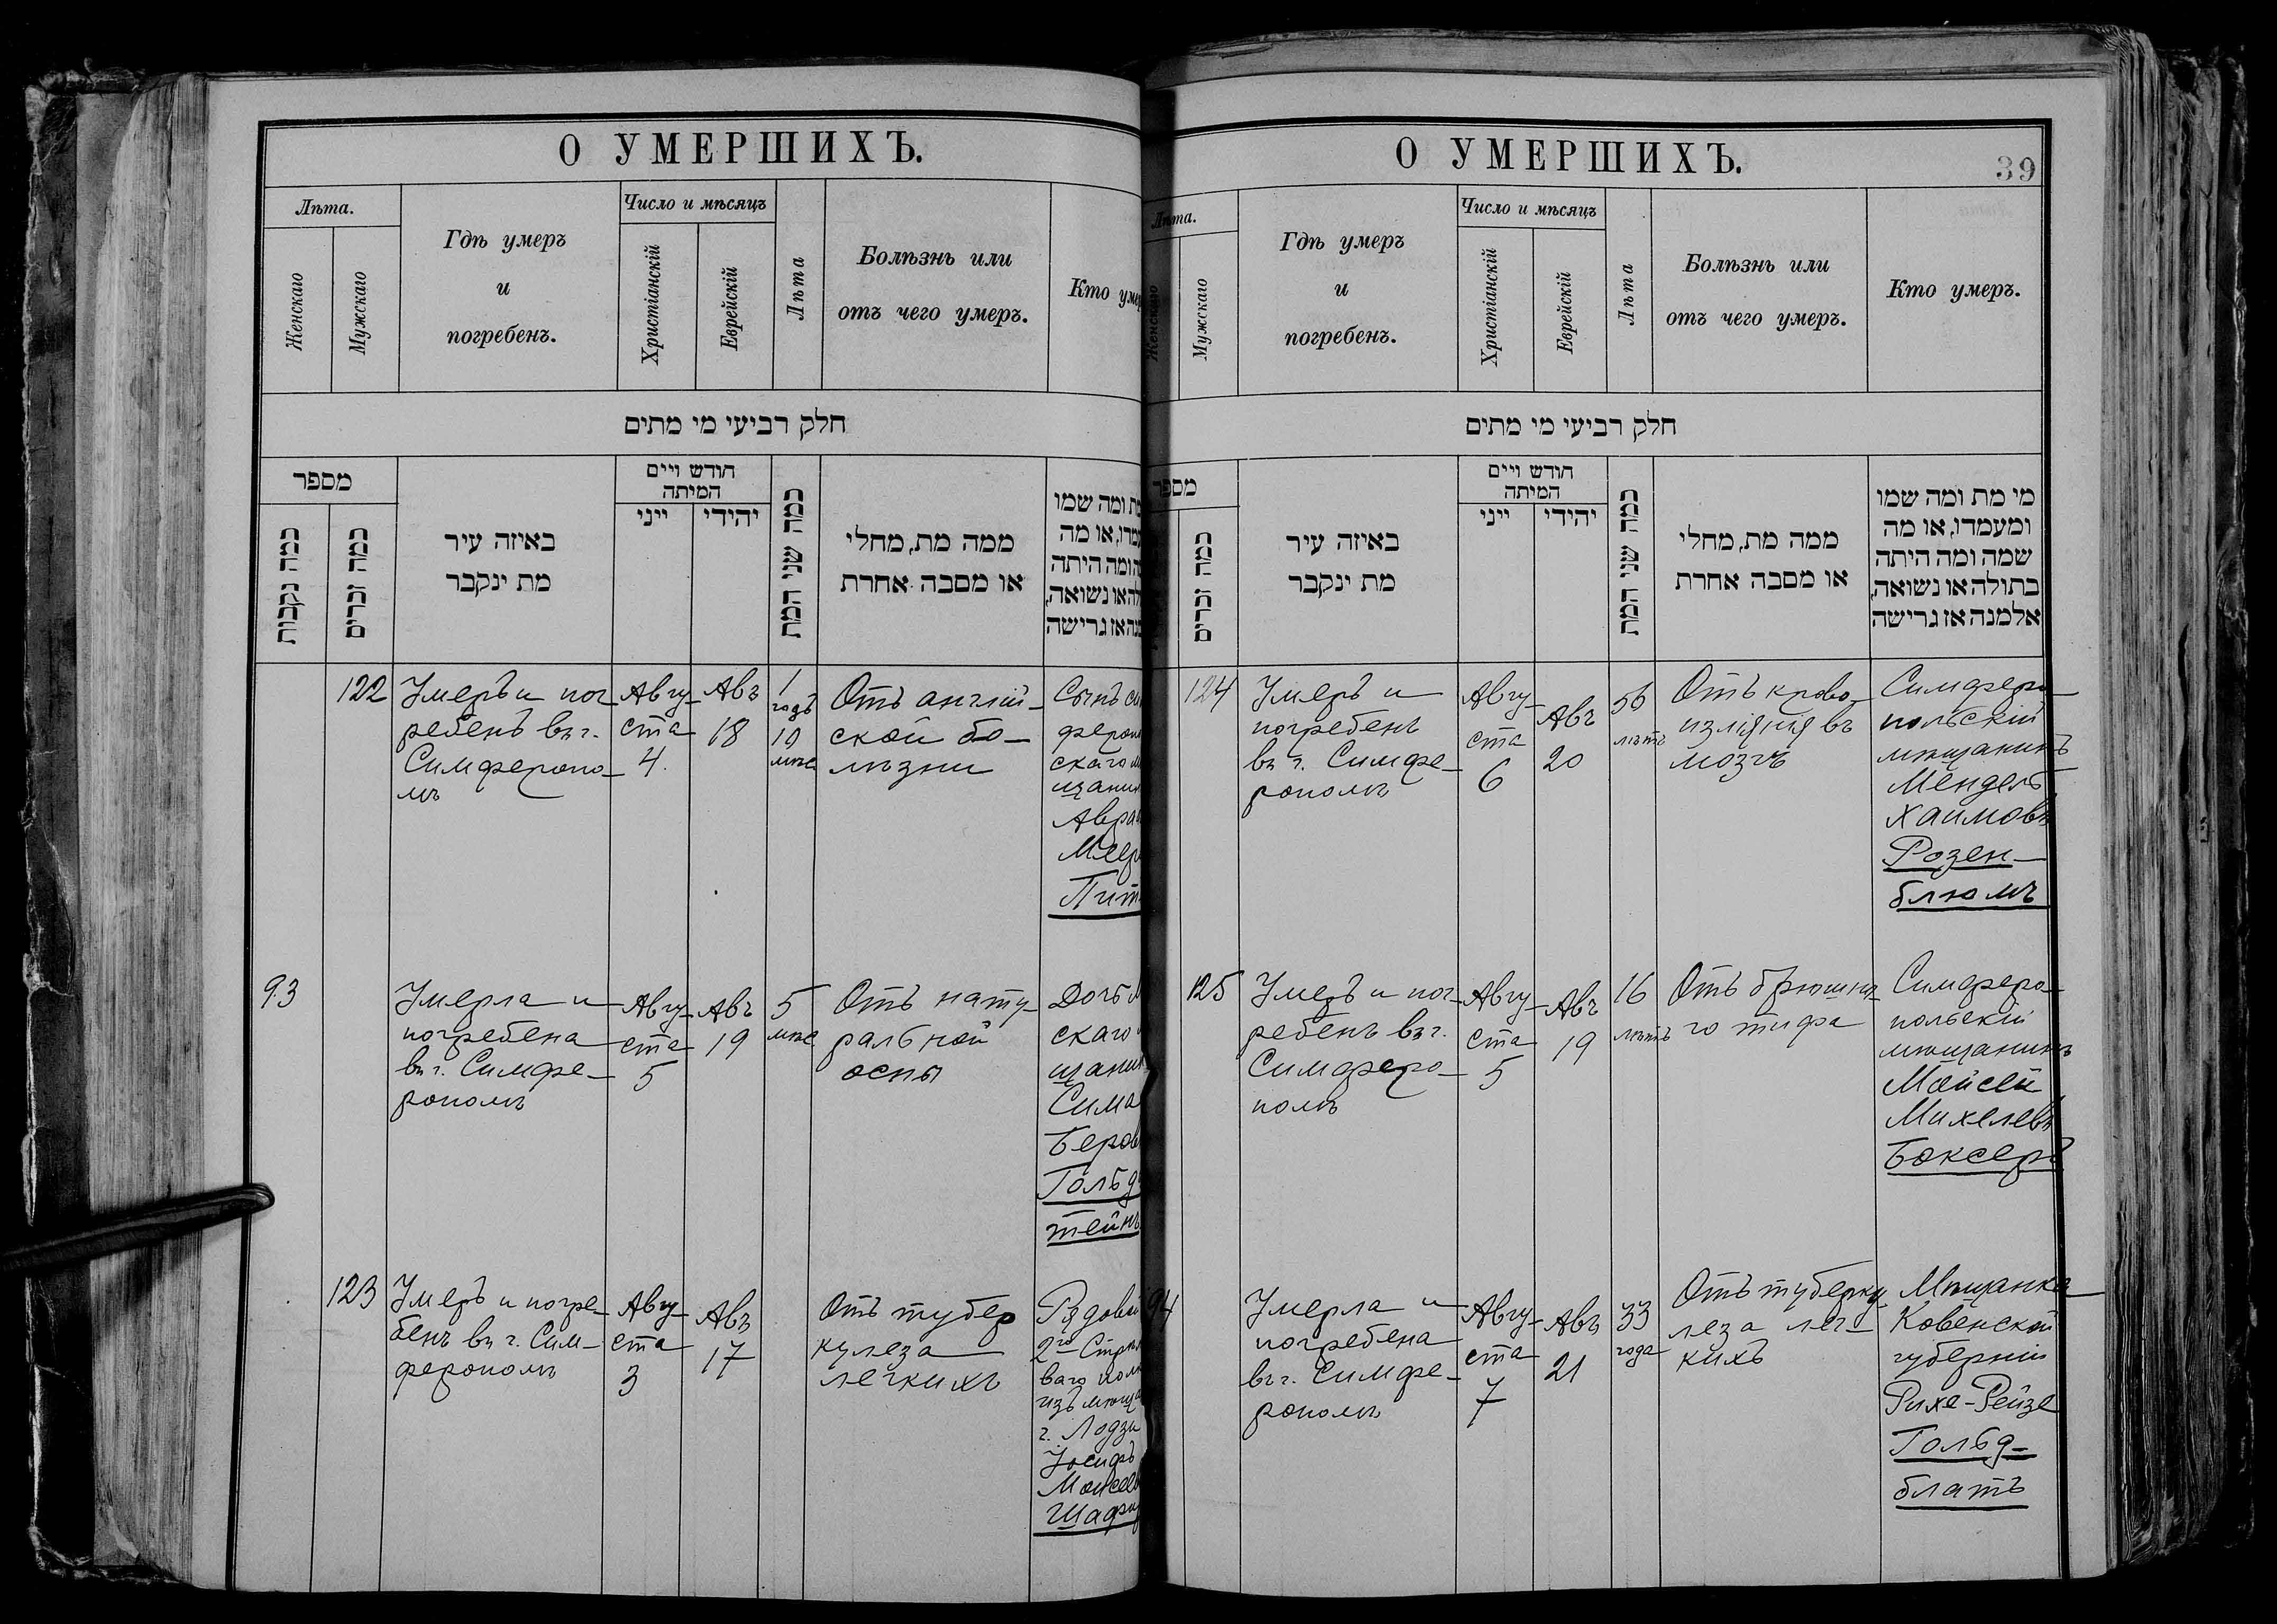 О УМЕРШИХЪ.
Лѣта.
Женскаго
Мужскаго
Гдѣ умеръ
и
погребенъ.
Число и мѣсяцъ
Христіанскій
Еврейскій
Лѣта
Болѣзнь или
отъ чего умеръ.
Кто умер
חלק רביעי מי מתים
מספר
כמה נקבות
כמה זכרים
באיזה עיר
מת ינקבר
חודש ויים
המיתה
ייני
יהידי
כמה שני המת
ממה מת, מחלי
או מסבה אחרת
מת ומה שמו
ומה היתה
או נשואה,
אז גרישה
122
Умеръ и пог
ребенъ въ г.
Симферопо-
лѣ
Авгу-
ста
4.
Авъ
18
1
годъ
10
мѣс
Отъ англій-
ской бо-
лѣзни
Сынъ си
феропо
скаго м
щанин
Авра
Меер
Пит
93
Умерла и
погребена
въ г. Симфе-
рополѣ
Авгу-
ста
5
Авъ
19
5
мѣс
Отъ нату-
ральной
оспы
Дочь М
скаго
щанин
Сима
Беров
Гольд
тейнъ
123
Умеръ и погре-
бенъ въ г. Сим-
ферополѣ
Авгу-
ста
3
Авъ
17
Отъ тубер
кулеза
легкихъ
Рядовой
2го Стрѣл
ваго полк
изъ мѣща
г. Лодзи
Іосифъ
Моисее
Шафи
О УМЕРШИХЪ.
39
Лѣта.
Женскаго
Мужскаго
Гдѣ умеръ
и
погребенъ.
Число и мѣсяцъ
Христіанскій
Еврейскій
Лѣта
Болѣзнь или
отъ чего умеръ.
Кто умеръ.
חלק רביעי מי מתים
מספר
כמה זכרים
באיזה עיר
מת ינקבר
חודש ויים
המיתה
ייני
יהידי
כמה שני המת
ממה מת, מחלי
או מסבה אחרת
מי מת ומה שמו
ומעמדו, או מה
שמה ומה היתה
בתולה או נשואה,
אלמנה אז גרישה
124
Умеръ и
погребенъ
въ г. Симфе-
рополѣ
Авгу-
ста
6
Авъ
20
56
лѣтъ
Отъ крово-
изліянія въ
мозгъ
Симферо-
польскій
мѣщанинъ
Мендель
Хаимовъ
Розен-
блюмъ
125
Умеръ и пог-
ребенъ въ г.
Симферо-
полѣ
Авгу-
ста
5
Авъ
19
16
лѣтъ
Отъ брюшна-
го тифа
Симферо-
польскій
мѣщанинъ
Мойсей
Михелевъ
Боксеръ
94
Умерла и
погребена
въ г. Симфе-
рополѣ
Авгу-
ста
7
Авъ
21
33
года
Отъ туберку-
леза лег-
кихъ
Мѣщанка
Ковенской
губерніи
Рихе-Рейзе
Гольд-
блатъ